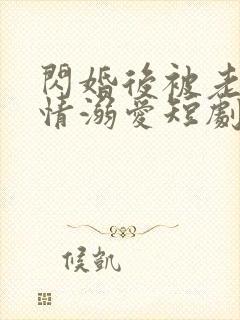 閃婚後被老
情溺愛短劇
候凱